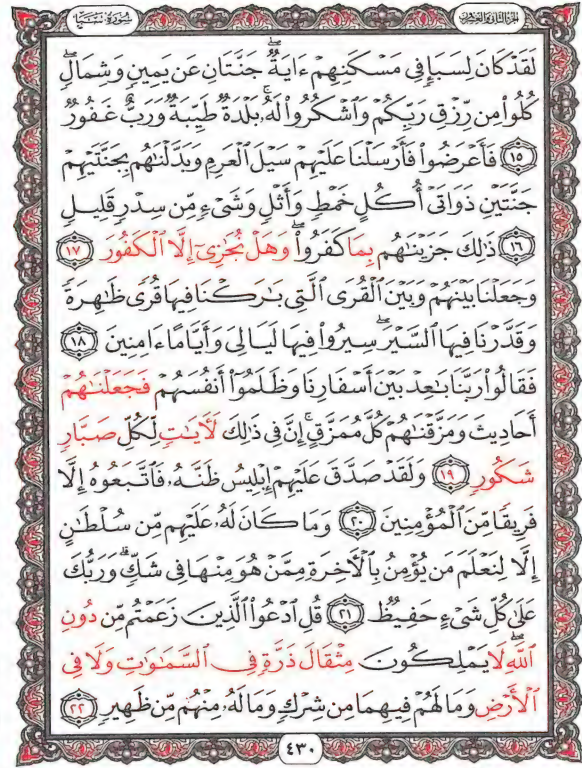 الجزء الثاني والعشرون
سورة سبإ
لَقَدْ كَانَ لِسَبَإٖ فِي مَسْكَنِهِمْ ءَايَةٌۖ جَنَّتَانِ عَن يَمِينٖ وَشِمَالٖۖ
كُلُواْ مِن رِّزْقِ رَبِّكُمْ وَٱشْكُرُواْ لَهُۥۚ بَلْدَةٞ طَيِّبَةٞ وَرَبٌّ غَفُورٞ
١٥ فَأَعْرَضُواْ فَأَرْسَلْنَا عَلَيْهِمْ سَيْلَ ٱلْعَرِمِ وَبَدَّلْنَٰهُم بِجَنَّتَيْهِمْ
جَنَّتَيْنِ ذَوَاتَيْ أُكُلٍ خَمْطٖ وَأَثْلٖ وَشَيْءٖ مِّن سِدْرٖ قَلِيلٖ
١٦ ذَٰلِكَ جَزَيْنَٰهُم بِمَا كَفَرُواْۖ وَهَلْ نُجَٰزِيٓ إِلَّا ٱلْكَفُورَ ١٧
وَجَعَلْنَا بَيْنَهُمْ وَبَيْنَ ٱلْقُرَى ٱلَّتِي بَٰرَكْنَا فِيهَا قُرٗى ظَٰهِرَةٗ
وَقَدَّرْنَا فِيهَا ٱلسَّيْرَۖ سِيرُواْ فِيهَا لَيَالِيَ وَأَيَّامًا ءَامِنِينَ ١٨
فَقَالُواْ رَبَّنَا بَٰعِدْ بَيْنَ أَسْفَارِنَا وَظَلَمُوٓاْ أَنفُسَهُمْ فَجَعَلْنَٰهُمْ
أَحَادِيثَ وَمَزَّقْنَٰهُمْ كُلَّ مُمَزَّقٍۚ إِنَّ فِي ذَٰلِكَ لَأٓيَٰتٖ لِّكُلِّ صَبَّارٖ
شَكُورٖ ١٩ وَلَقَدْ صَدَّقَ عَلَيْهِمْ إِبْلِيسُ ظَنَّهُۥ فَٱتَّبَعُوهُ إِلَّا
فَرِيقٗا مِّنَ ٱلْمُؤْمِنِينَ ٢٠ وَمَا كَانَ لَهُۥ عَلَيْهِم مِّن سُلْطَٰنٍ
إِلَّا لِنَعْلَمَ مَن يُؤْمِنُ بِٱلْأٓخِرَةِ مِمَّنْ هُوَ مِنْهَا فِي شَكّٖۗ وَرَبُّكَ
عَلَىٰ كُلِّ شَيْءٍ حَفِيظٞ ٢١ قُلِ ٱدْعُواْ ٱلَّذِينَ زَعَمْتُم مِّن دُونِ
ٱللَّهِۖ لَا يَمْلِكُونَ مِثْقَالَ ذَرَّةٖ فِي ٱلسَّمَٰوَٰتِ وَلَا فِي
ٱلْأَرْضِ وَمَا لَهُمْ فِيهِمَا مِن شِرْكٖ وَمَا لَهُۥ مِنْهُم مِّن ظَهِيرٖ ٢٢
٤٣٠